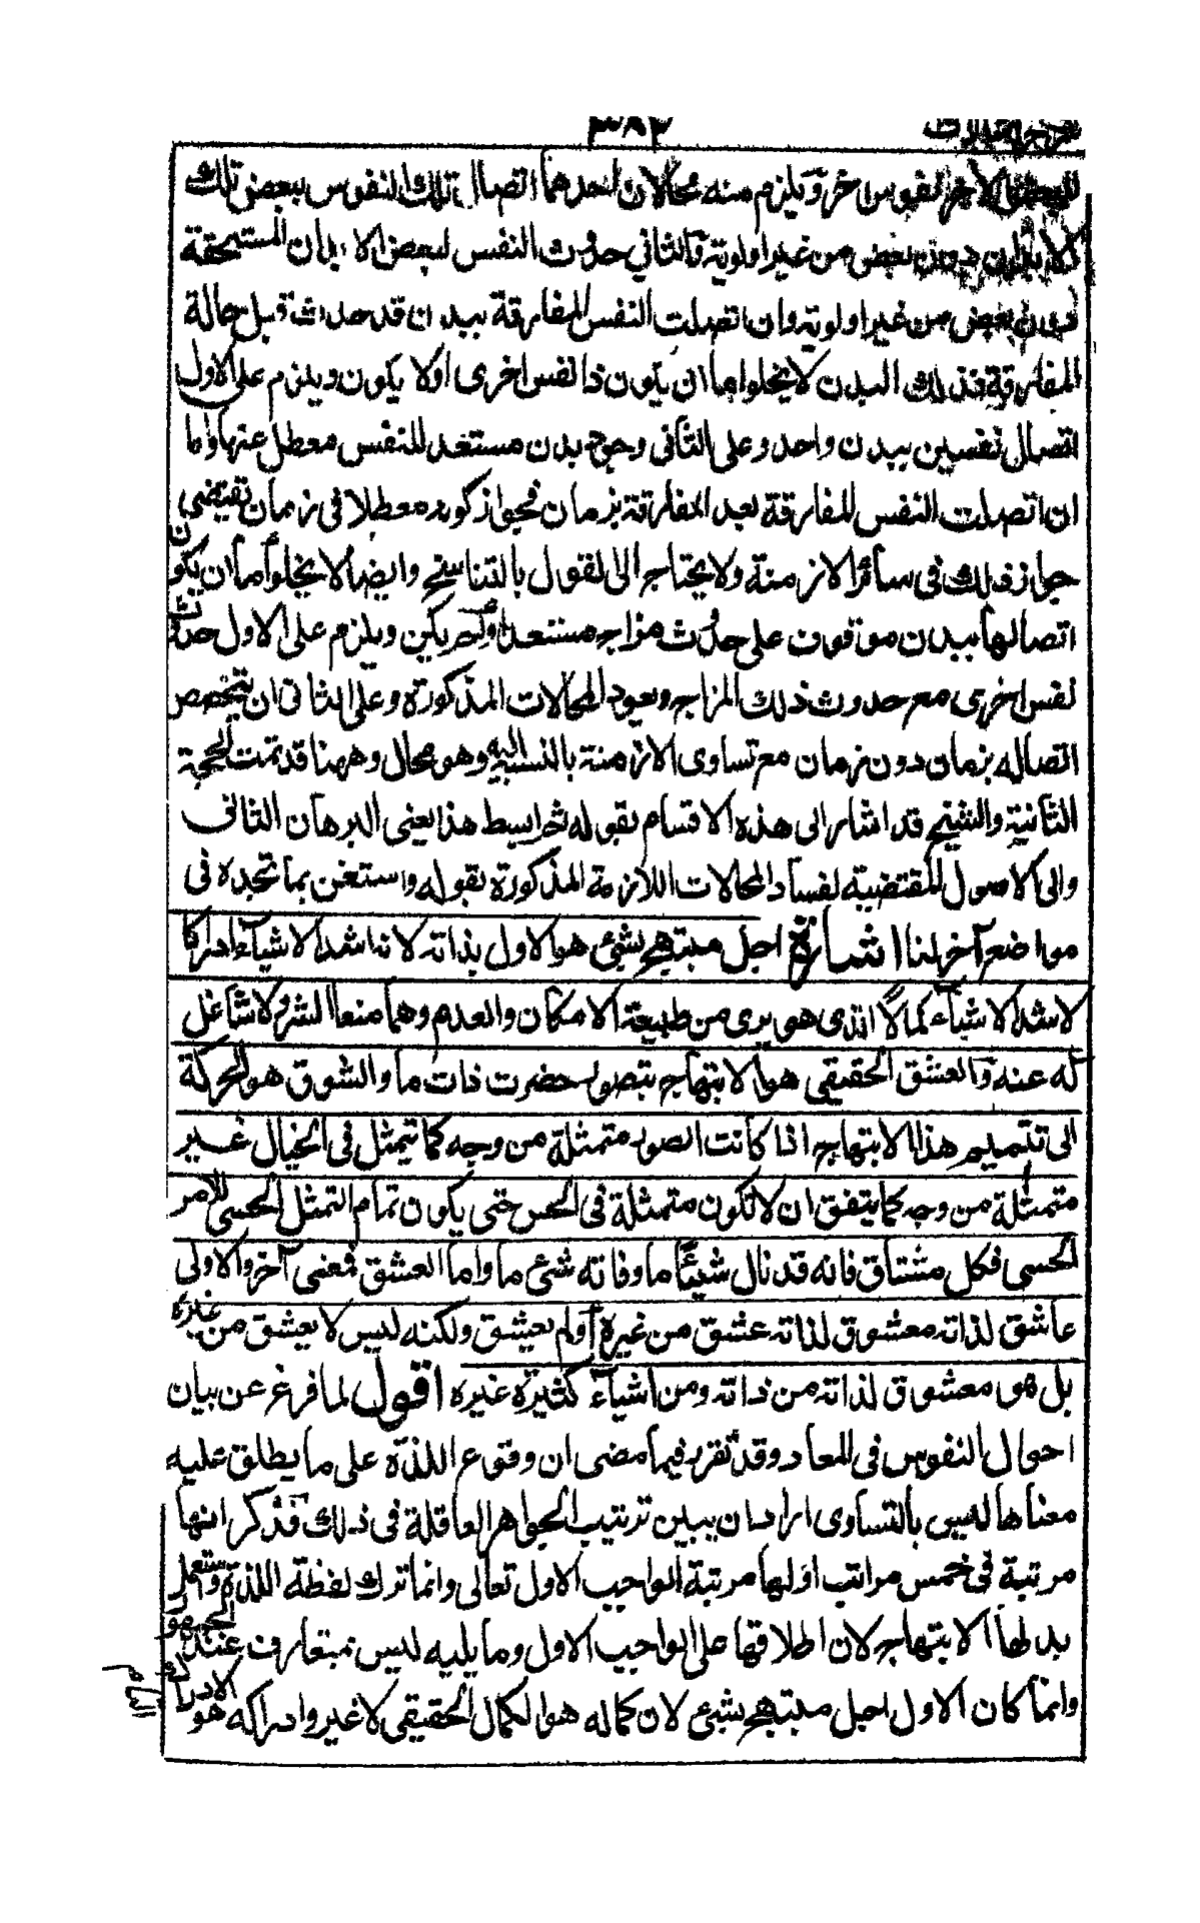 شرح اشارات
٣٨٢
للبعض الاخر نفوس اخر ويلزم منه محالان احدهما اتصال تلك النفوس ببعض تلك
الابدان دون بعض من غير اولوية والثانى حدوث النفس لبعض الابدان المستحقة
دون بعض من غير اولوية وان اتصلت النفس المفارقة ببدن قد حدث قبل حالة
المفارقة فذلك البدن لا يخلو اما ان يكون ذا نفس اخرى او لا يكون ويلزم على الاول
اتصال نفسين ببدن واحد وعلى الثانى وجود بدن مستعد للنفس معطل عنها واما
ان اتصلت النفس المفارقة بعد المفارقة بزمان فجواز كونه معطلا فى زمان يقتضى
جواز ذلك فى سائر الازمنة ولا يحتاج الى القول بالتناسخ وايضا لا يخلو اما ان يكون
اتصالها ببدن موقوف على حدوث مزاج مستعد او لم يكن ويلزم على الاول حدوث
نفس اخرى مع حدوث ذلك المزاج ويعود المحالات المذكورة وعلى الثانى ان يتخصص
اتصاله بزمان دون زمان مع تساوى الازمنة بالنسبة اليه وهو محال وههنا قد تمت الحجة
الثانية والشيخ قد اشار الى هذه الاقسام بقوله ثم ابسط هذا يعنى البرهان الثانى
والى الاصول المقتضية لفساد المحالات اللازمة المذكورة بقوله واستغن بما تجده فى
مواضع آخر لنا اشارة اجل مبتهج بشئ هو الاول بذاته لانه اشد الاشياء ادراكا
لاشد الاشياء كمالا الذى هو برى من طبيعة الامكان والعدم وهما منبعا الشر ولا شاغل
له عنه والعشق الحقيقى هو الابتهاج بتصور حضرت ذات ما والشوق هو الحركة
الى تتميم هذا الابتهاج اذا كانت الصور متمثلة من وجه كما يتمثل فى الخيال غير
متمثلة من وجه كما يتفق ان لا تكون متمثلة فى الحس حتى يكون تمام التمثل الحسى للامر
الحسى فكل مشتاق فانه قد نال شيئا ما وفاته شئ ما واما العشق فمعنى آخر والاولى
عاشق لذاته معشوق لذاته عشق من غيره او لم يعشق ولكنه ليس لا يعشق من غيره
بل هو معشوق لذاته من ذاته ومن اشياء كثيرة غيره اقول لما فرغ عن بيان
احوال النفوس فى المعاد وقد تقرر فيما مضى ان وقوع اللذة على ما يطلق عليه
معناها ليس بالتساوى اراد ان يبين ترتيب الجواهر العاقلة فى ذلك فذكر انها
مرتبة فى خمس مراتب اولها مرتبة الواجب الاول تعالى وانما ترك لفظة اللذة واستعمل
بدلها الابتهاج لان اطلاقها على الواجب الاول وما يليه ليس بمتعارف عند الجمهور
وانما كان الاول اجل مبتهج بشئ لان كماله هو الكمال الحقيقى لا غير وادراكه هو الادراك
التام